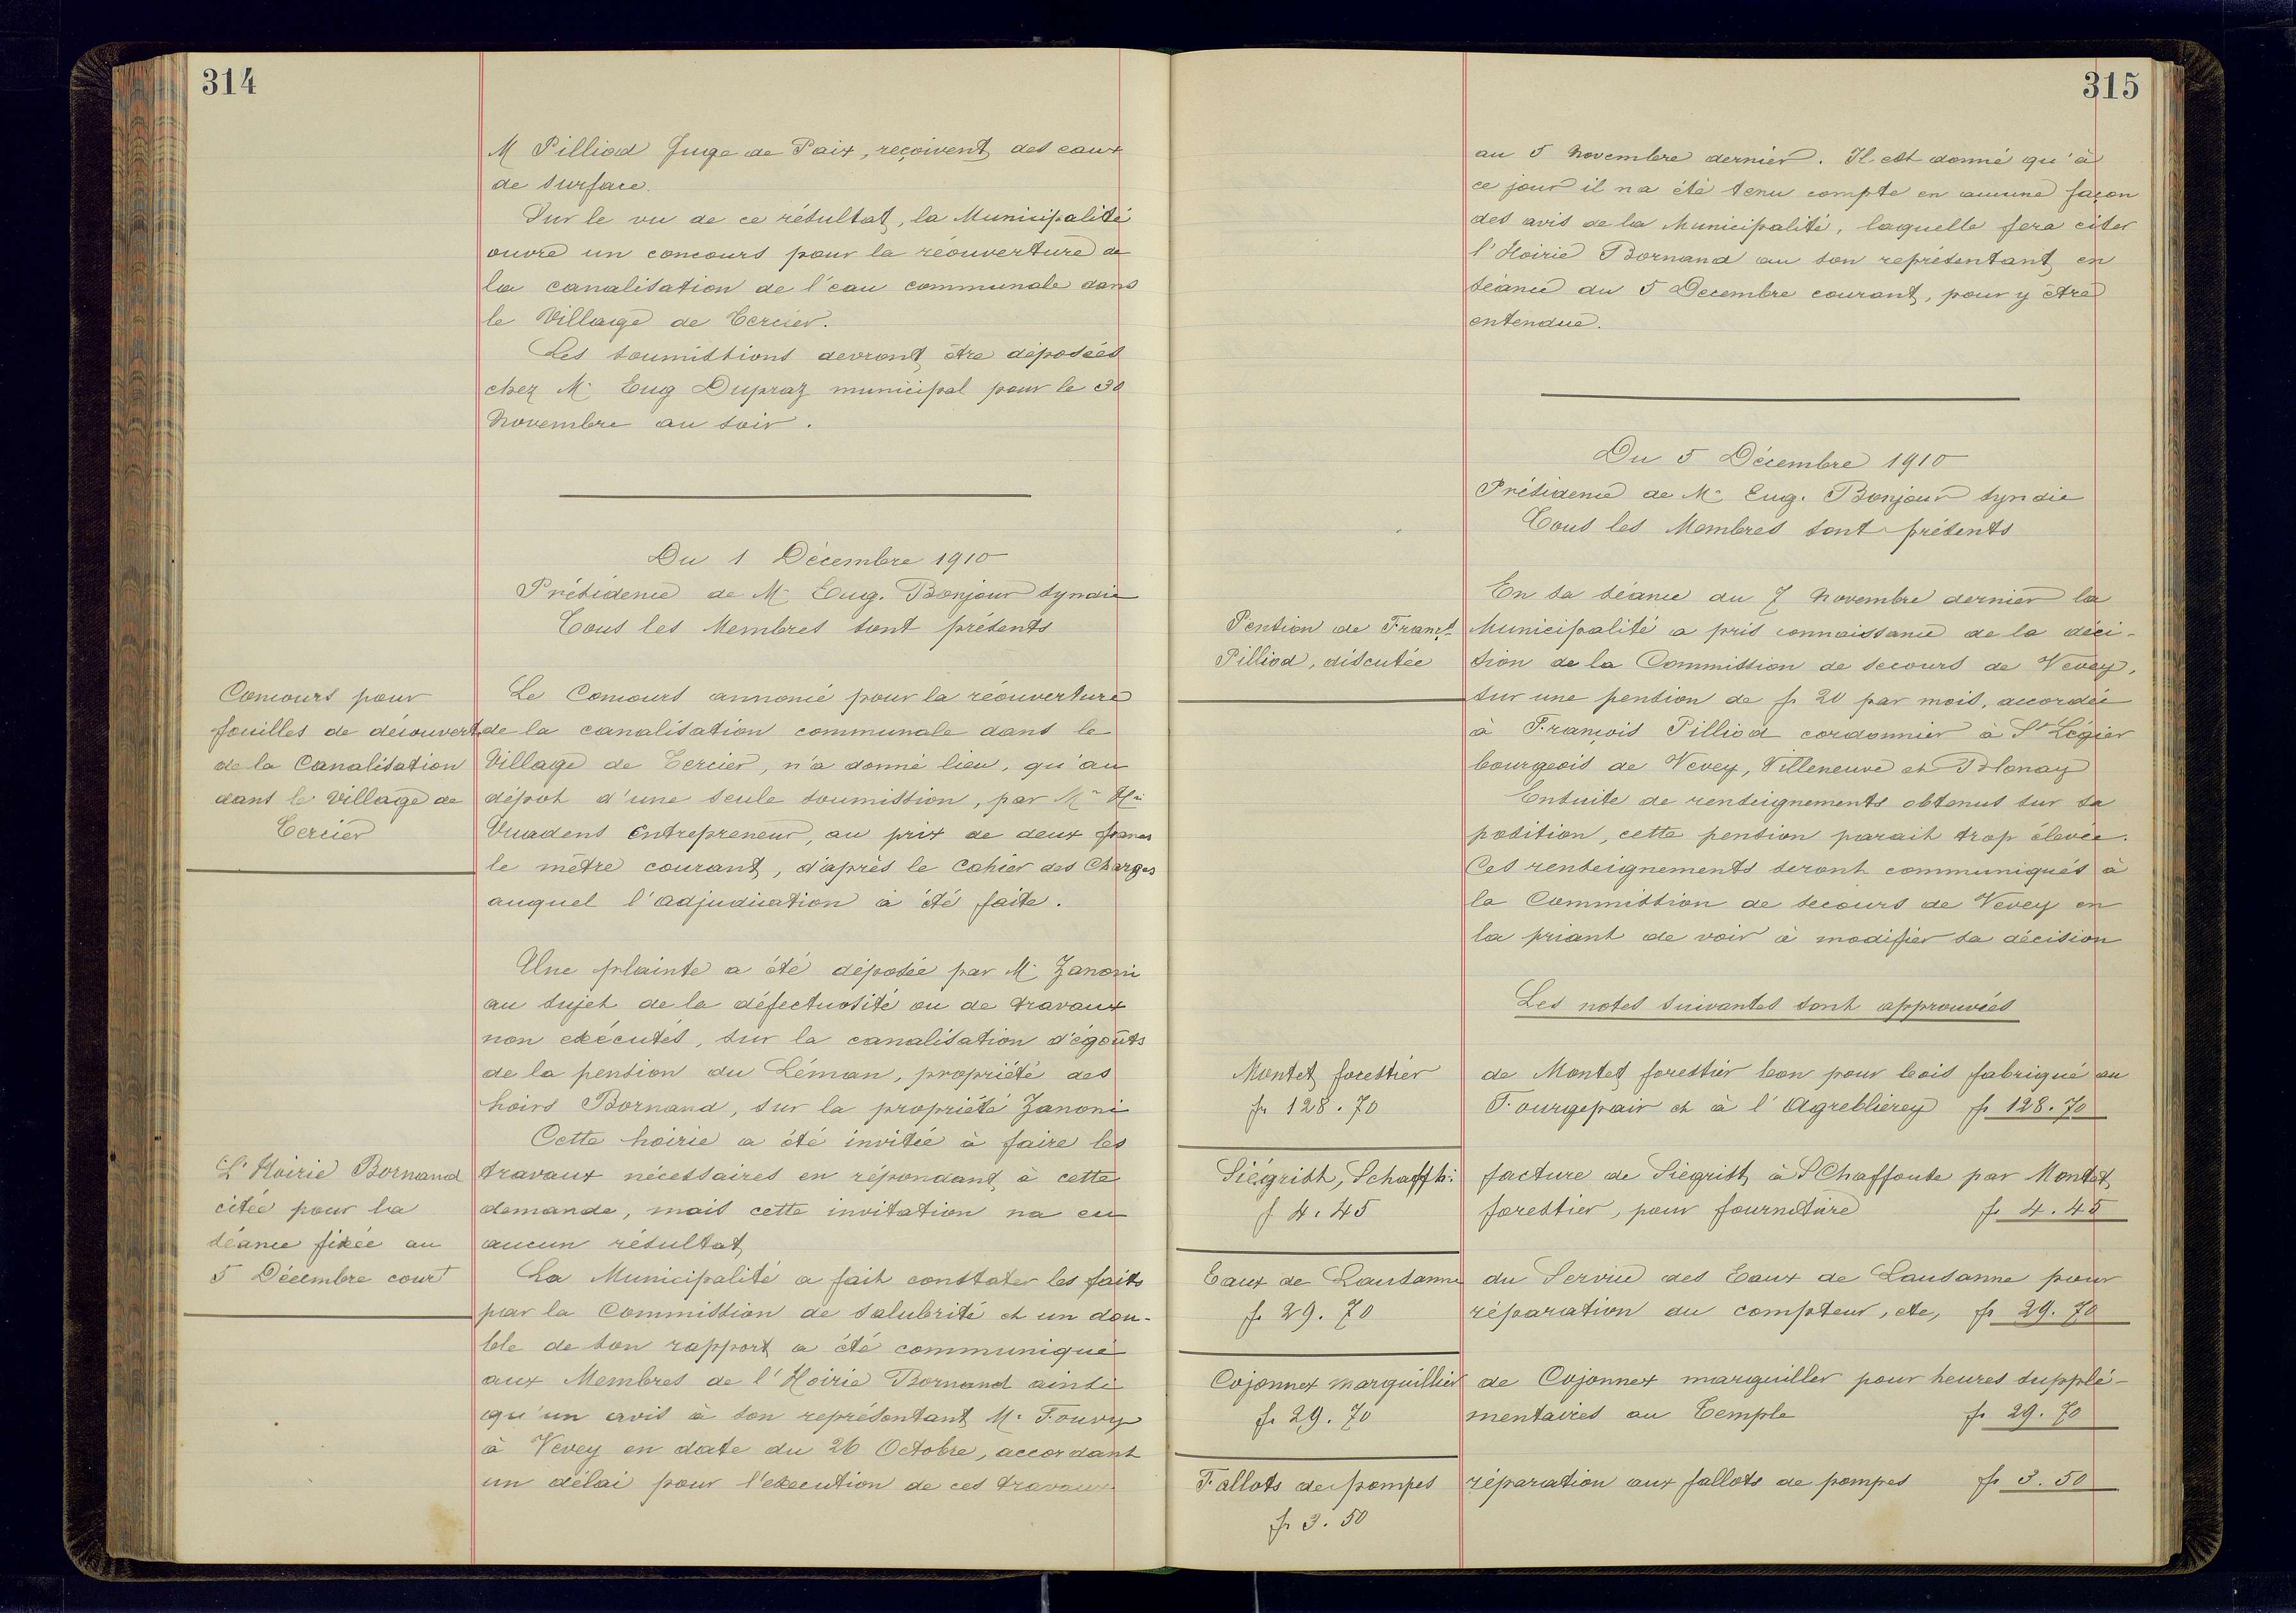 314
M Pilliod Juge de Paix, reçoivent des eaux
de surface.
Sur le vu de ce résultat, la Municipalité
ouvre un concours pour la réouverture de
la canalisation de l'eau communale dans
le Village de Tercier.
Les soumissions devront être déposées
chez Mr Eug Dupraz municipal pour le 30
Novembre au soir.
Du 1 Décembre 1910
Présidence de Mr Eug. Bonjour syndic
Tous les Membres sont présents
Concours pour
fouilles de découvert
de la Canalisation
dans le village de
Tercier
Le Concours annoncé pour la réouverture
de la canalisation communale dans le
Village de Tercier, n'a donné lieu, qu'au
dépot d'une seule soumission, par Mr Hri
Vuadens Entrepreneur, au prix de deux francs
le mètre courant, d'après le Cahier des Charges
auquel l'adjudication à été faite.
Une plainte a été déposée par Mr Zanoni
au sujet de la défectuosité ou de travaux
non exécutés, sur la canalisation d'égoûts
de la pension du Léman, propriété des
hoirs Bornand, sur la propriété Zanoni
Cette hoirie a été invitée à faire les
travaux nécessaires en répondant à cette
demande, mais cette invitation na eu
aucun résultat
L'Hoirie Bornand
citée pour la
séance fixée au
5 Décembre court
La Municipalité a fait constater les faits
par la Commission de salubrité et un dou-
ble de son rapport a été communiqué
aux Membres de l'Hoirie Bornand ainsi
qu'un avis à son représentant Mr Fouvy
à Vevey en date du 26 Octobre, accordant
un délai pour l'execution de ces travaux
315
au 5 Novembre dernier. Il est donné qu'à
ce jour il na été tenu compte en aucune façon
des avis de la Municipalité, laquelle fera citer
l'Hoirie Bornand au son représentant en
séance du 5 Decembre courant, pour y être
entendue.
Du 5 Décembre 1910
Présidence de Mr Eug. Bonjour syndic
Tous les Membres sont présents
Pension de Françs
Pilliod, discutée
En sa séance du 7 Novembre dernier la
Municipalité a pris connaissance de la déci-
sion de la Commission de secours de Vevey,
sur une pension de fr 20 par mois, accordée
à François Pilliod cordonnier à St Légier
bourgeois de Vevey, Villeneuve et Blonay
Ensuite de renseignements obtenus sur sa
position, cette pension parait trop élevée.
Ces renseignements seront communiqués à
la Commission de secours de Vevey en
la priant de voir à modifier sa décision
Les notes suivantes sont approuvées
Montet forestier
fr 128.70
de Montet forestier bon pour bois fabriqué au
Fourgepair et à l'Agreblierey fr 128.70
Siégrist, Schaffh:
f 4.45
facture de Siegrist à SChaffouse par Montet
forestier, pour fourniture fr 4.45
Eaux de Lausanne
fr 29.70
du Service des Eaux de Lausanne pour
réparation du compteur, etc, fr 29.70
Cojonnex marguillier
fr 29.70
de Cojonnex marguiller pour heures supplé-
mentaires au Temple fr 29.70
Fallots de pompes
fr 3.50
réparation aux fallots de pompes fr 3.50